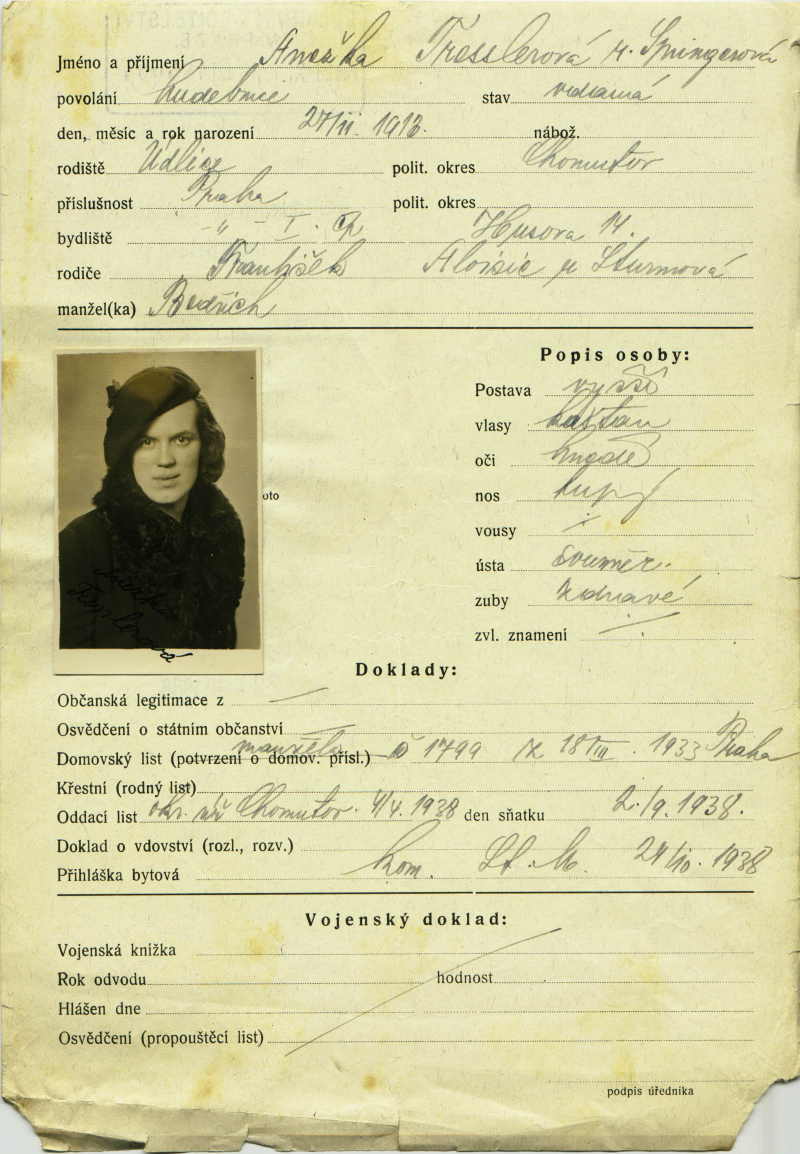 Jméno a příjmení Anežka Tresslerová r. Springerová
povolání hudebnice stav vdaná
den, měsíc a rok narození 27/II. 1913. nábož.
rodiště Údlice polit. okres Chomutov
příslušnost Praha polit. okres
bydliště -"- I. Husova 14.
rodiče František Aloisie r. Sturmová
manžel(ka) Bedřich
Popis osoby:
Postava vyšší
vlasy kaštan
oči hnědé
oto
nos tupý
vousy /
ústa souměr.
zuby zdravé
zvl. znamení /
Anežka
Tresslerová
Doklady:
Občanská legitimace z —
Osvědčení o státním občanství —
manžela
Domovský list (potvrzení o domov. přísl.) č 1799 z 18/III. 1933 Praha
Křestní (rodný list)
Oddací list okr. úř Chomutov. 4/4. 1938 den sňatku 2./9. 1938.
Doklad o vdovství (rozl., rozv.)
Přihláška bytová kom. St. M. 24/10. 1938
Vojenský doklad:
Vojenská knížka
Rok odvodu hodnost
Hlášen dne
Osvědčení (propouštěcí list)
podpis úředníka